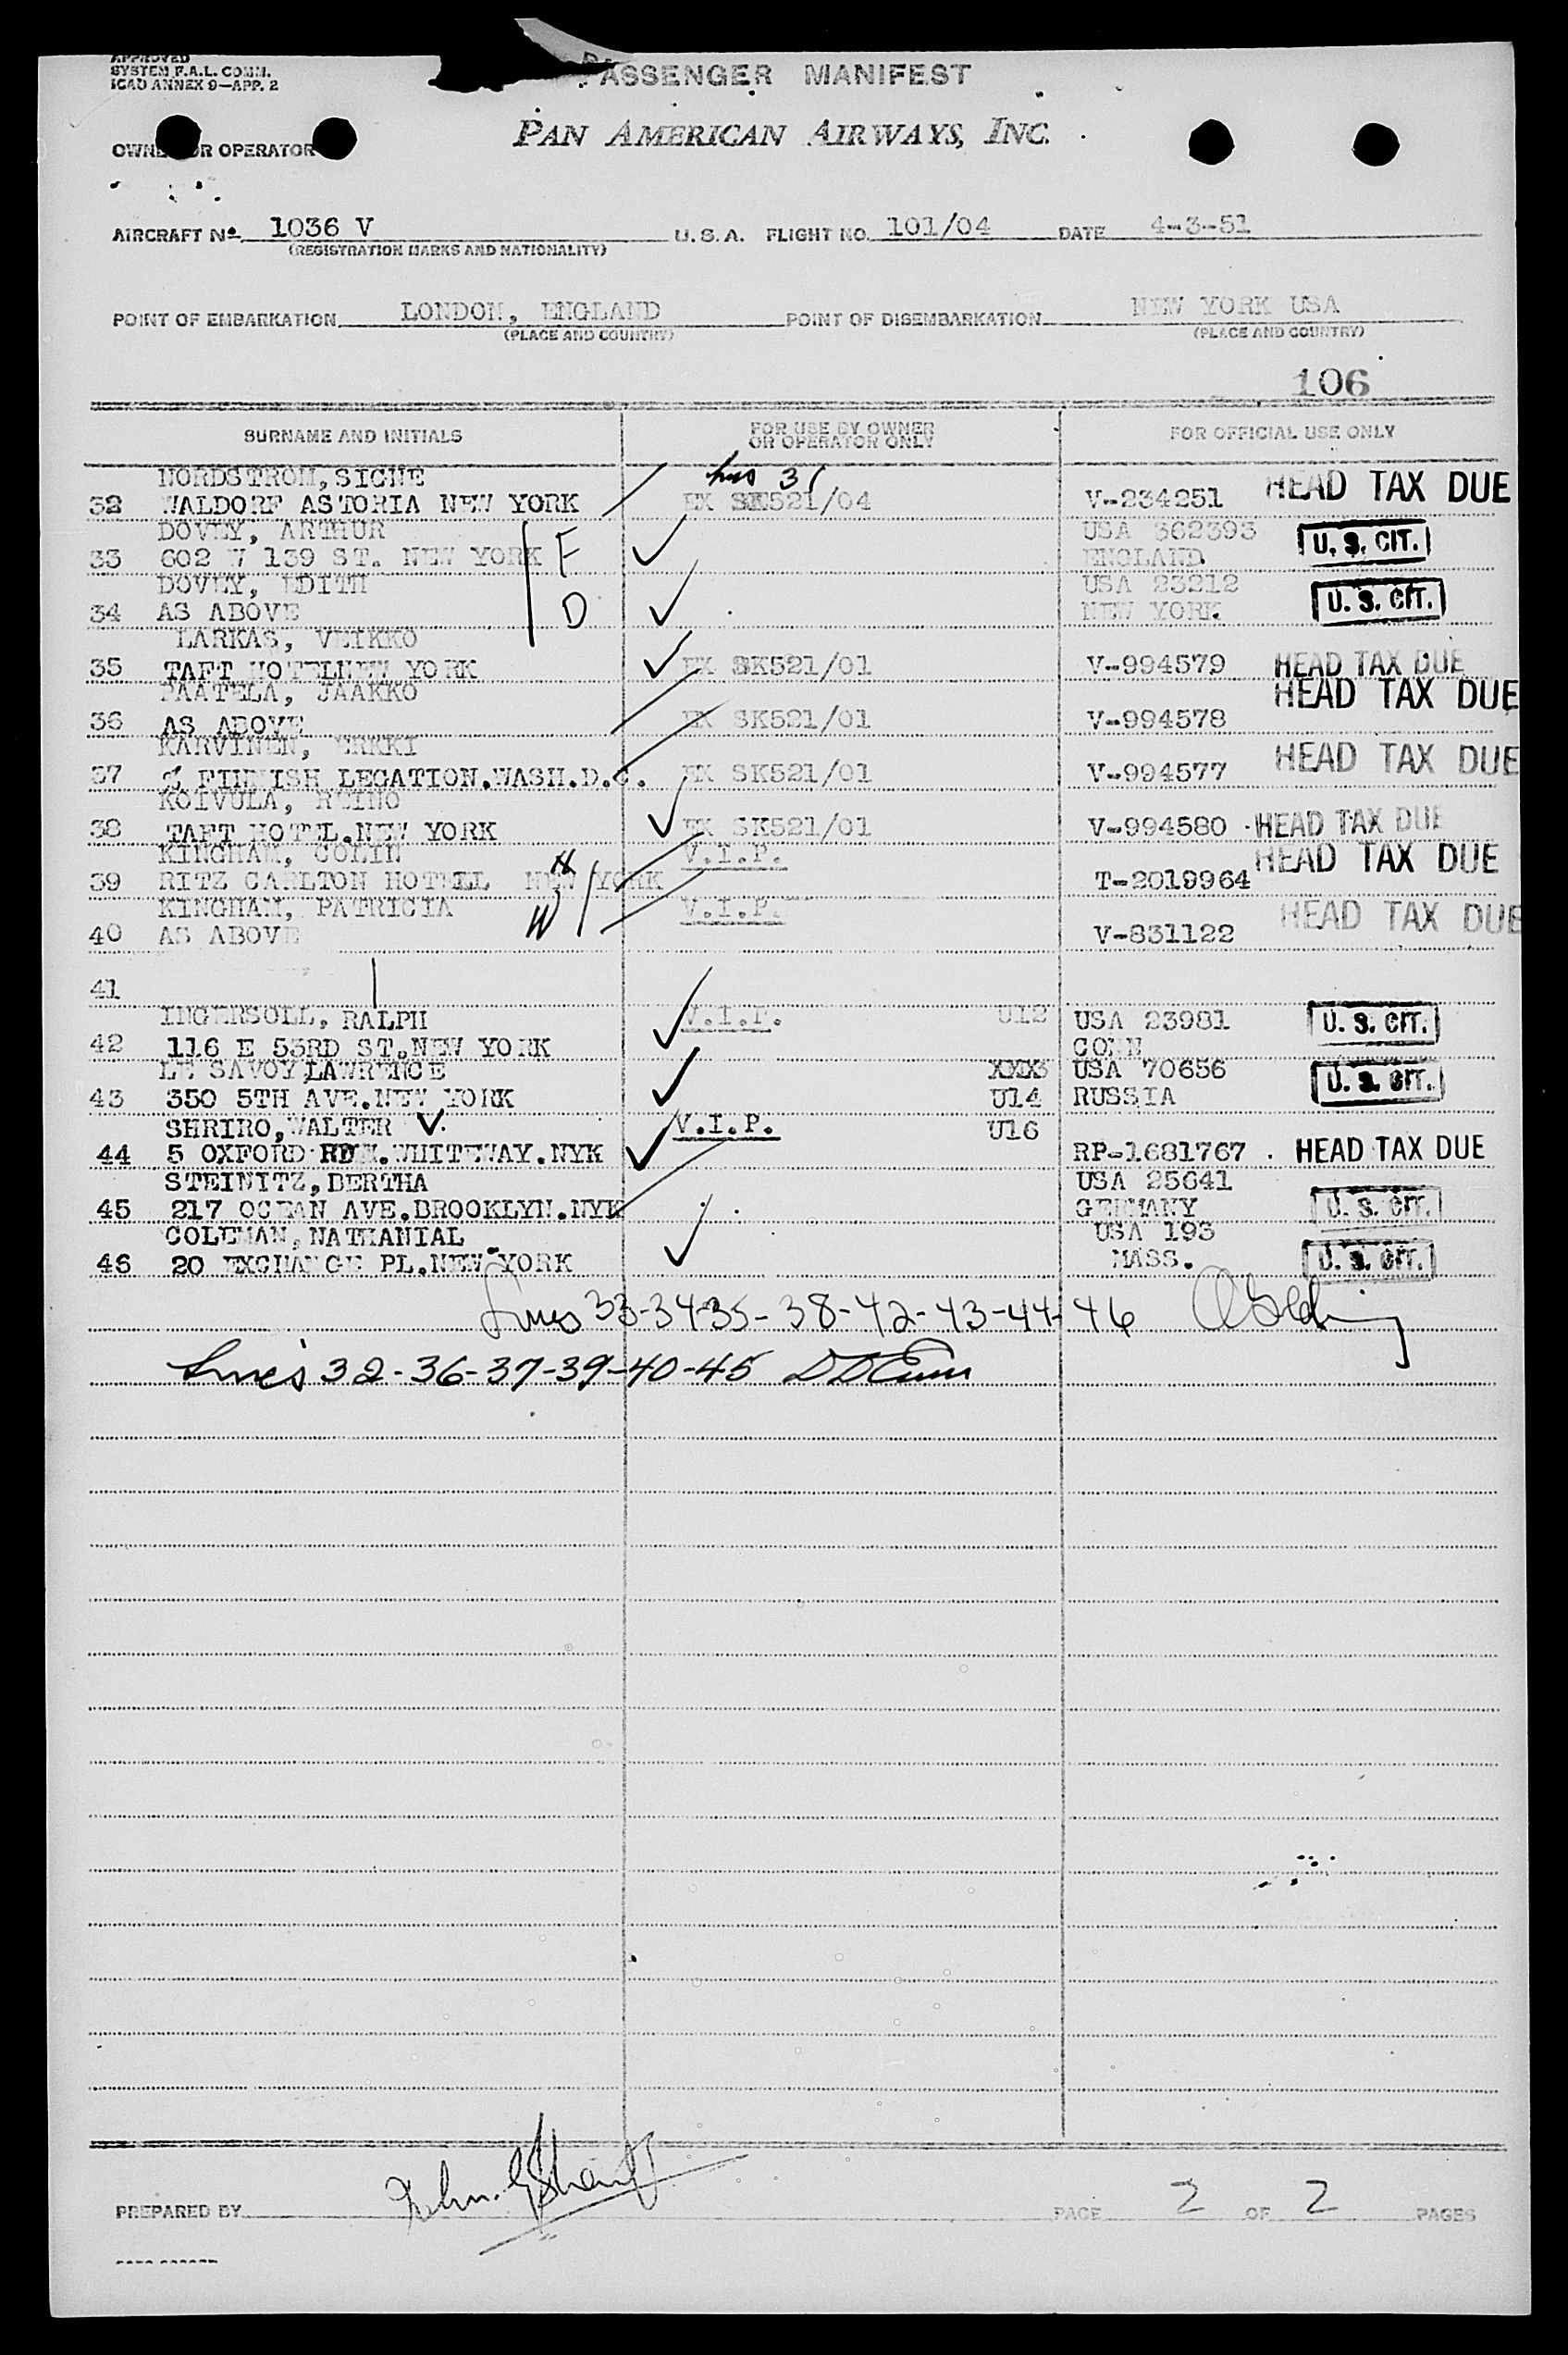 APPROVED
SYSTEM F.A.L. COMM.
ICAO ANNEX 9—APP. 2
PASSENGER MANIFEST
PAN AMERICAN AIRWAYS, INC.
OWNER OR OPERATOR
AIRCRAFT No. 1036 V U.S.A. FLIGHT NO. 101/04 DATE 4-3-51
(REGISTRATION MARKS AND NATIONALITY)
POINT OF EMBARKATION LONDON, ENGLAND POINT OF DISEMBARKATION NEW YORK USA
(PLACE AND COUNTRY) (PLACE AND COUNTRY)
106
SURNAME AND INITIALS FOR USE BY OWNER OR OPERATOR ONLY FOR OFFICIAL USE ONLY
NORDSTROM, SIGNE 31
32 WALDORF ASTORIA NEW YORK EX SK521/04 V-234251 HEAD TAX DUE
DOVEY, ARTHUR USA 362393
33 602 W 139 ST. NEW YORK F ENGLAND U. S. CIT.
DOVEY, EDITH USA 23212
34 AS ABOVE D NEW YORK U. S. CIT.
LARKAS, VEIKKO
35 TAFT HOTELNEW YORK EX SK521/01 V-994579 HEAD TAX DUE
PAATELA, JAAKKO
36 AS ABOVE EX SK521/01 V-994578 HEAD TAX DUE
KARVINEN, ERKKI
37 % FINNISH LEGATION.WASH.D.C. EX SK521/01 V-994577 HEAD TAX DUE
KOIVULA, REINO
38 TAFT HOTEL.NEW YORK EX SK521/01 V-994580 HEAD TAX DUE
KINGHAM, COLIN V.I.P.
39 RITZ CARLTON HOTELL NEW YORK H T-2019964 HEAD TAX DUE
KINGHAM, PATRICIA V.I.P.
40 AS ABOVE W V-831122 HEAD TAX DUE
41
INGERSOLL, RALPH V.I.P. U12 USA 23981
42 116 E 53RD ST.NEW YORK CONN U. S. CIT.
LE SAVOY LAWRENCE USA 70656
43 350 5TH AVE.NEW YORK U14 RUSSIA U. S. CIT.
SHRIRO, WALTER V. V.I.P. U16
44 5 OXFORD RD .WHITEWAY.NYK RP-1681767 HEAD TAX DUE
STEINITZ, BERTHA USA 25641
45 217 OCEAN AVE.BROOKLYN.NYK GERMANY U. S. CIT.
COLEMAN, NATHANIAL USA 193
46 20 EXCHANGE PL.NEW YORK MASS. U. S. CIT.
Lines 33-34-35-38-42-43-44-46
Line's 32-36-37-39-40-45
PREPARED BY PAGE 2 OF 2 PAGES